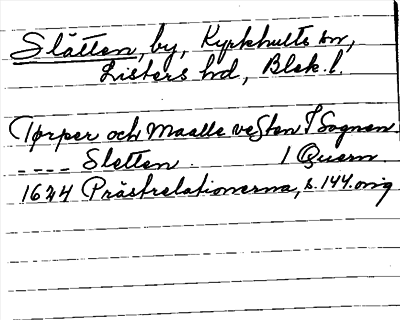 Slätten, by, Kyrkhults sn,
Listers hd, Blek. l.
Torper och Maalle vesten I Sognen
---- Sletten. 1 Quern
1624 Prästrelationerna, s. 144. orig